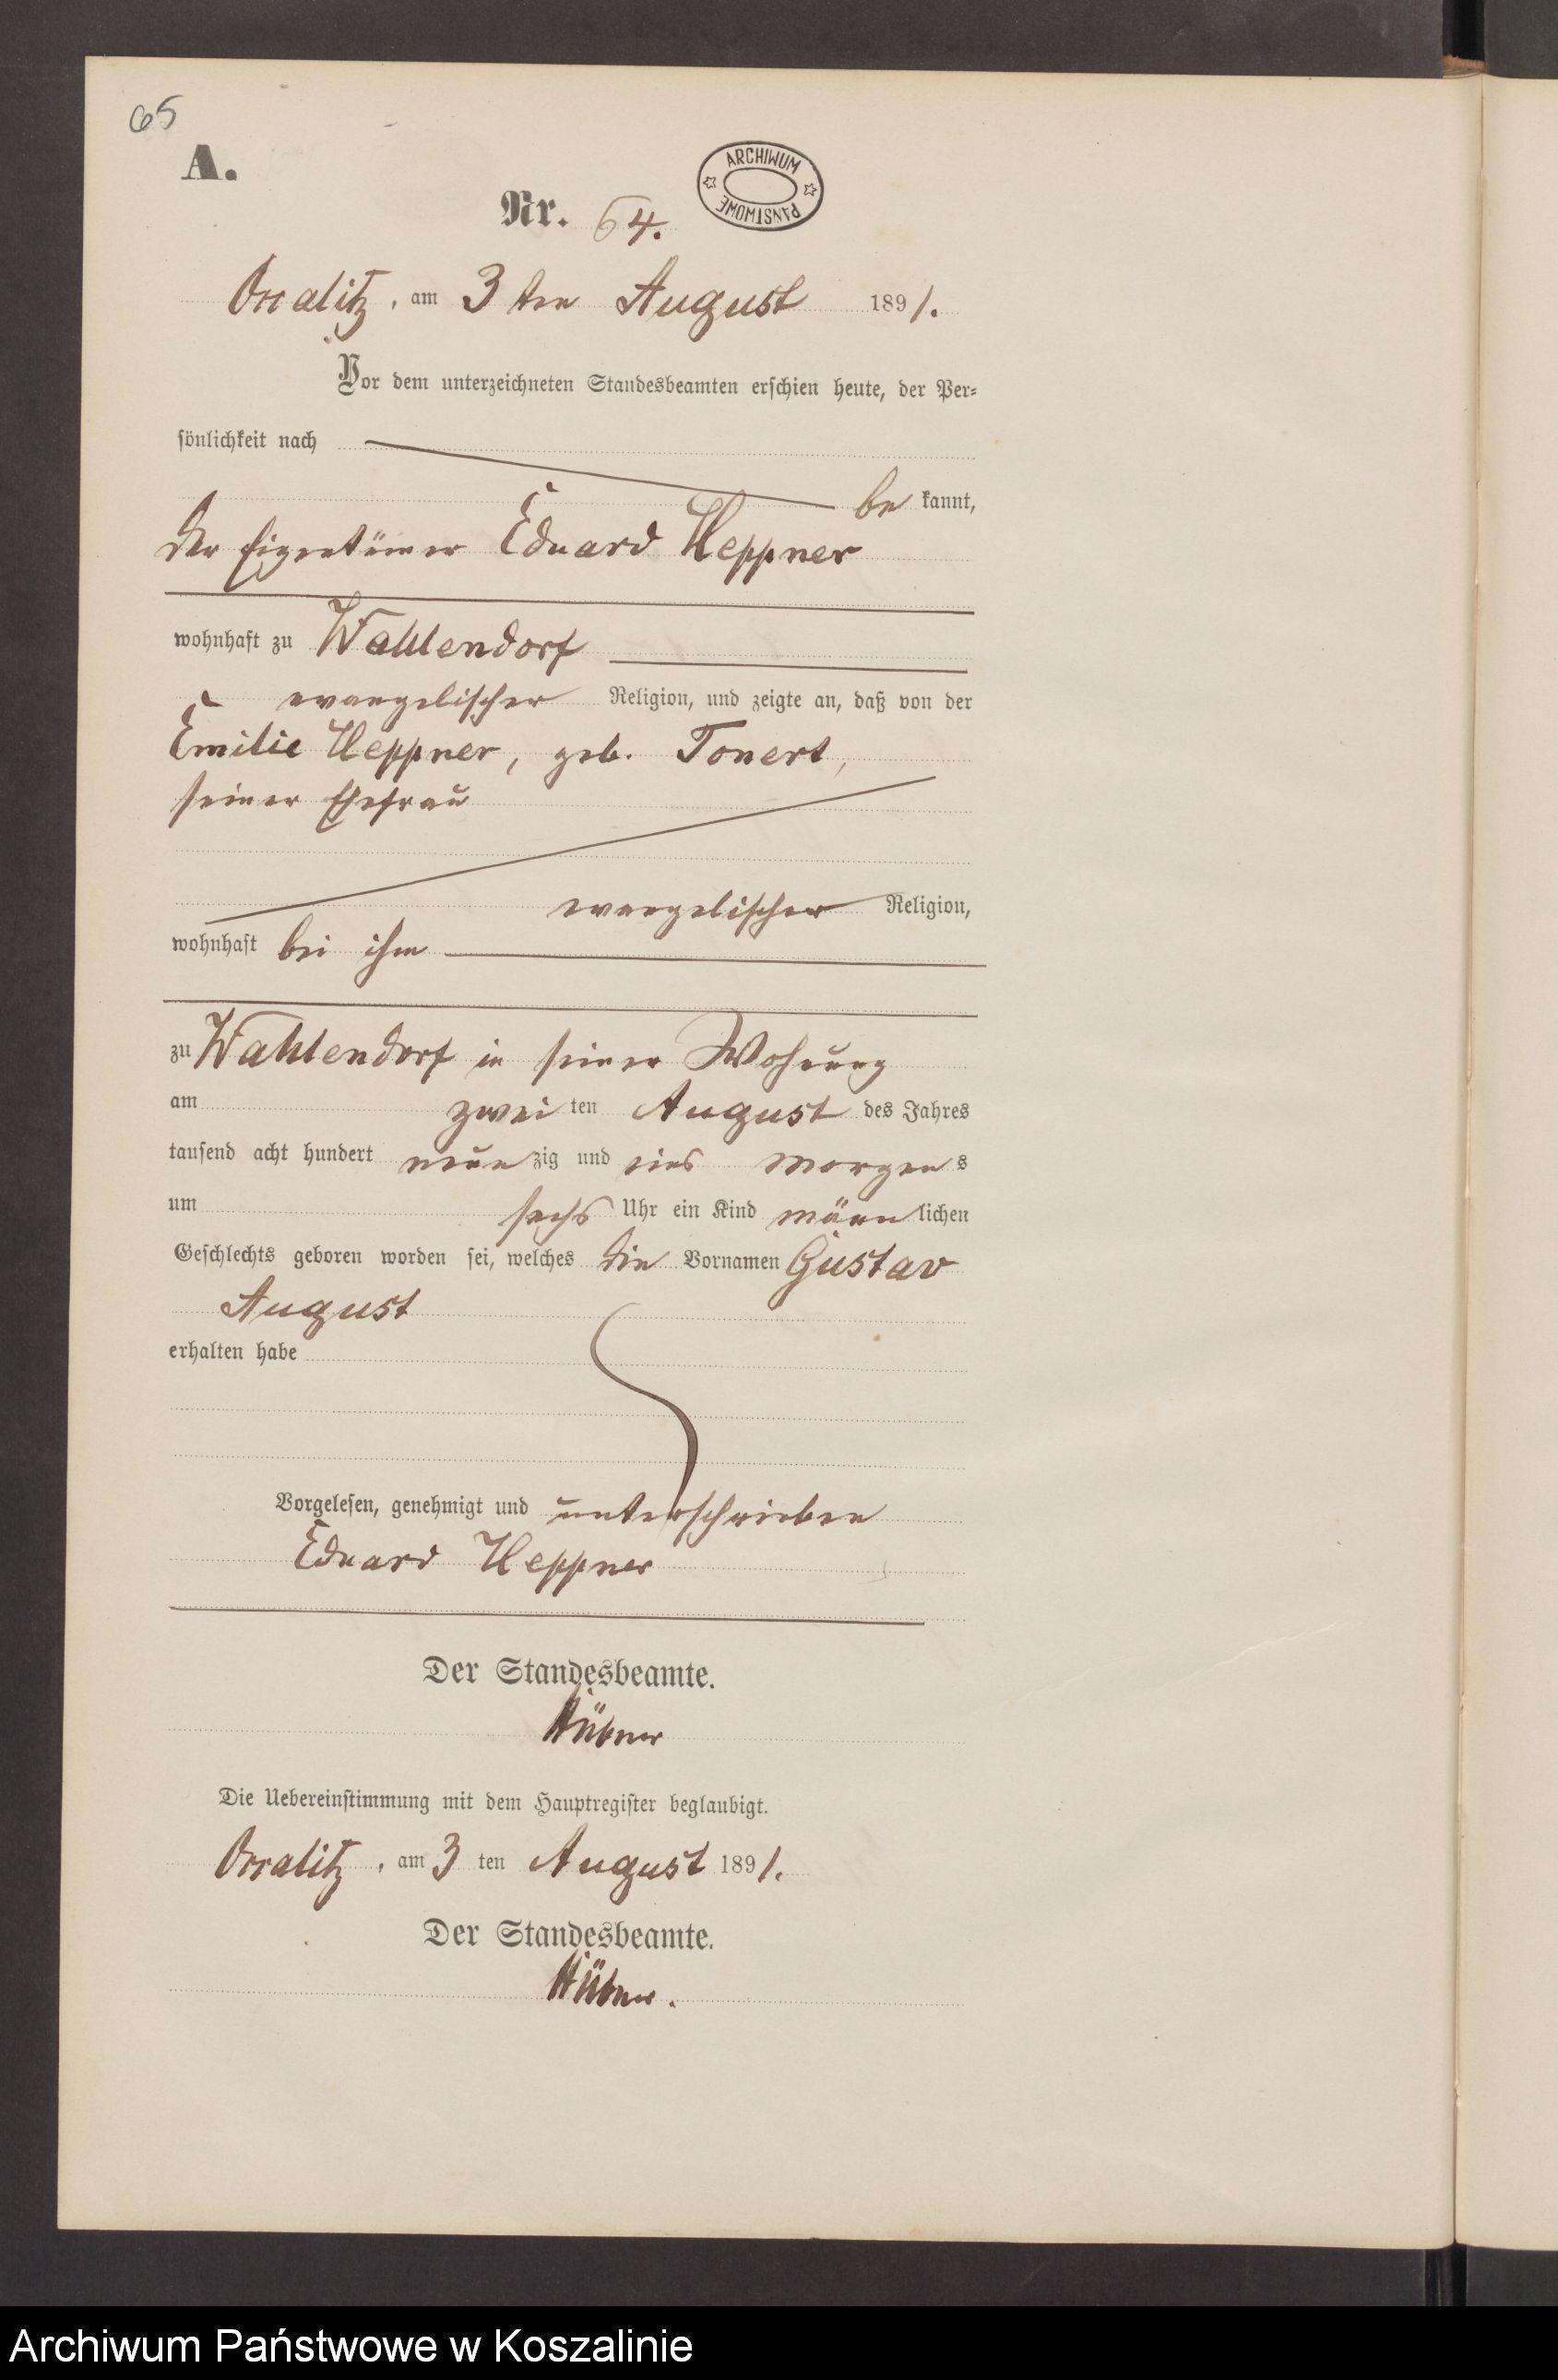 65
A.
ARCHIWUM PAŃSTWOWE
Nr. 64.
am 3 ten August 1891.
Vor dem unterzeichneten Standesbeamten erschien heute, der Per-
sönlichkeit nach
be kannt,
der Eigentümer Eduard Heppner
wohnhaft zu Wahlendorf
evangelischer Religion, und zeigte an, daß von der
Emilie Heppner, geb. Tonert,
seiner Ehefrau
evangelischer Religion,
wohnhaft bei ihm
zu Wahlendorf in seiner Wohnung
am zwei ten August des Jahres
tausend acht hundert neun zig und eins Morgen s
um sechs Uhr ein Kind männ lichen
Geschlechts geboren worden sei, welches die Vornamen Gustav
August
erhalten habe
Vorgelesen, genehmigt und unterschrieben
Eduard Heppner
Der Standesbeamte.
Hübner
Die Uebereinstimmung mit dem Hauptregister beglaubigt.
am 3 ten August 1891.
Der Standesbeamte.
Hübner.
Archiwum Państwowe w Koszalinie